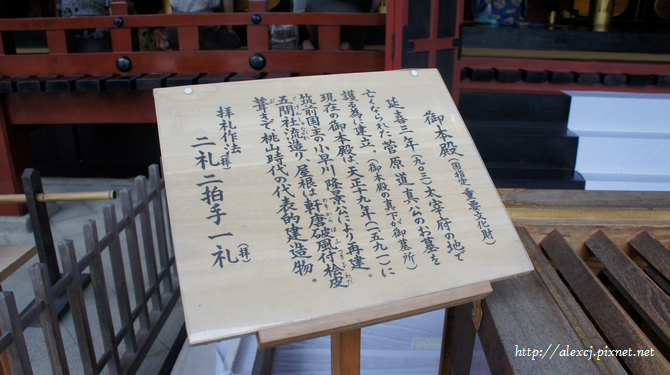 御本殿(国指定・重要文化財)
延喜三年(九〇三)太宰府の地で
亡くなられた菅原道真公のお墓を
護る為に建立。(御本殿の真下が御墓所)
現在の御本殿は、天正十九年(一五九一)に
筑前国主の小早川隆景公により再建。
五間社流造り、屋根は軒唐破風付桧皮
葺きで桃山時代の代表的建造物。
拝礼作法(拝)
二礼二拍手一礼(拝)
http://alexcj.pixnet.net